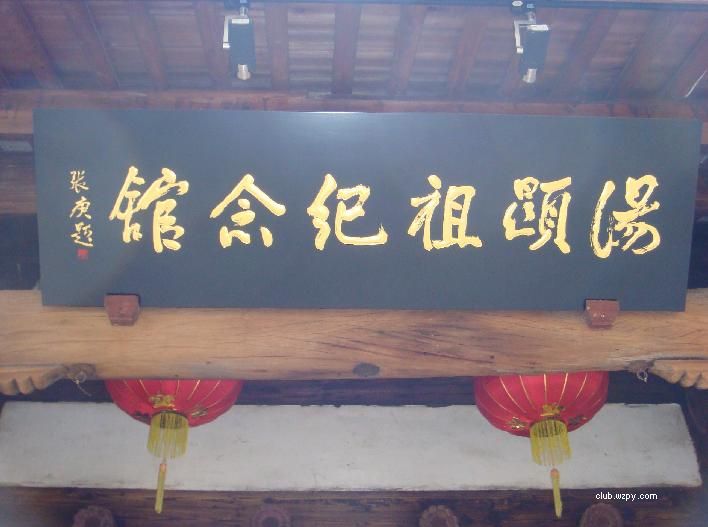 湯顯祖紀念館
张庚题
club.wzpy.com